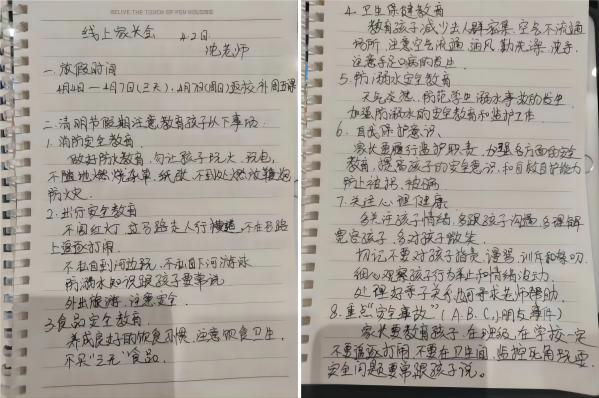 RELIVE THE TOUCH OF PEN WRITING
线上家长会 4.2日
沈老师
一、放假时间
4月4日—4月7日(三天),4月7日(周日)返校补周五课
二、清明节假期注意教育孩子以下事项:
1.消防安全教育
做好防火教育,勿让孩子玩火、玩电,
不随地燃烧杂草、纸张,不到处燃放鞭炮
防火灾。
2.出行安全教育
不闯红灯,过马路走人行横道,不在马路
上追逐打闹。
不私自到河边玩,不私自下河游泳
防溺水知识跟孩子要常说
外出旅游,注意安全
3.食品安全教育
养成良好的饮食习惯,注意饮食卫生,
不买"三无"食品。
4.卫生保健教育
教育孩子减少去人群密集、空气不流通
场所,注意空气流通,通风,勤洗澡、洗手,
注意手足口病的发生
5.防溺水安全教育
天气炎热,防范学生溺水事故的发生
加强防溺水的安全教育和监护工作
6.自我保护意识
家长要履行监护职责,加强各方面的安全
教育,提高孩子的安全意识,和自救自护能力
防止被拐、被骗
7.关注心理健康
多关注孩子情绪,多跟孩子沟通,多理解
宽容孩子,多对孩子微笑
切记不要对孩子指责、谩骂、训斥和
细心观察孩子行为举止和情绪波动.
处理好亲子关系,也可寻求老师帮助.
8.重点"安全事故"(A、B、C,朋友事件)
家长要教育孩子,在班级、在学校一定
不要追逐打闹,不要在卫生间、监控死角玩耍
安全问题要常跟孩子说。